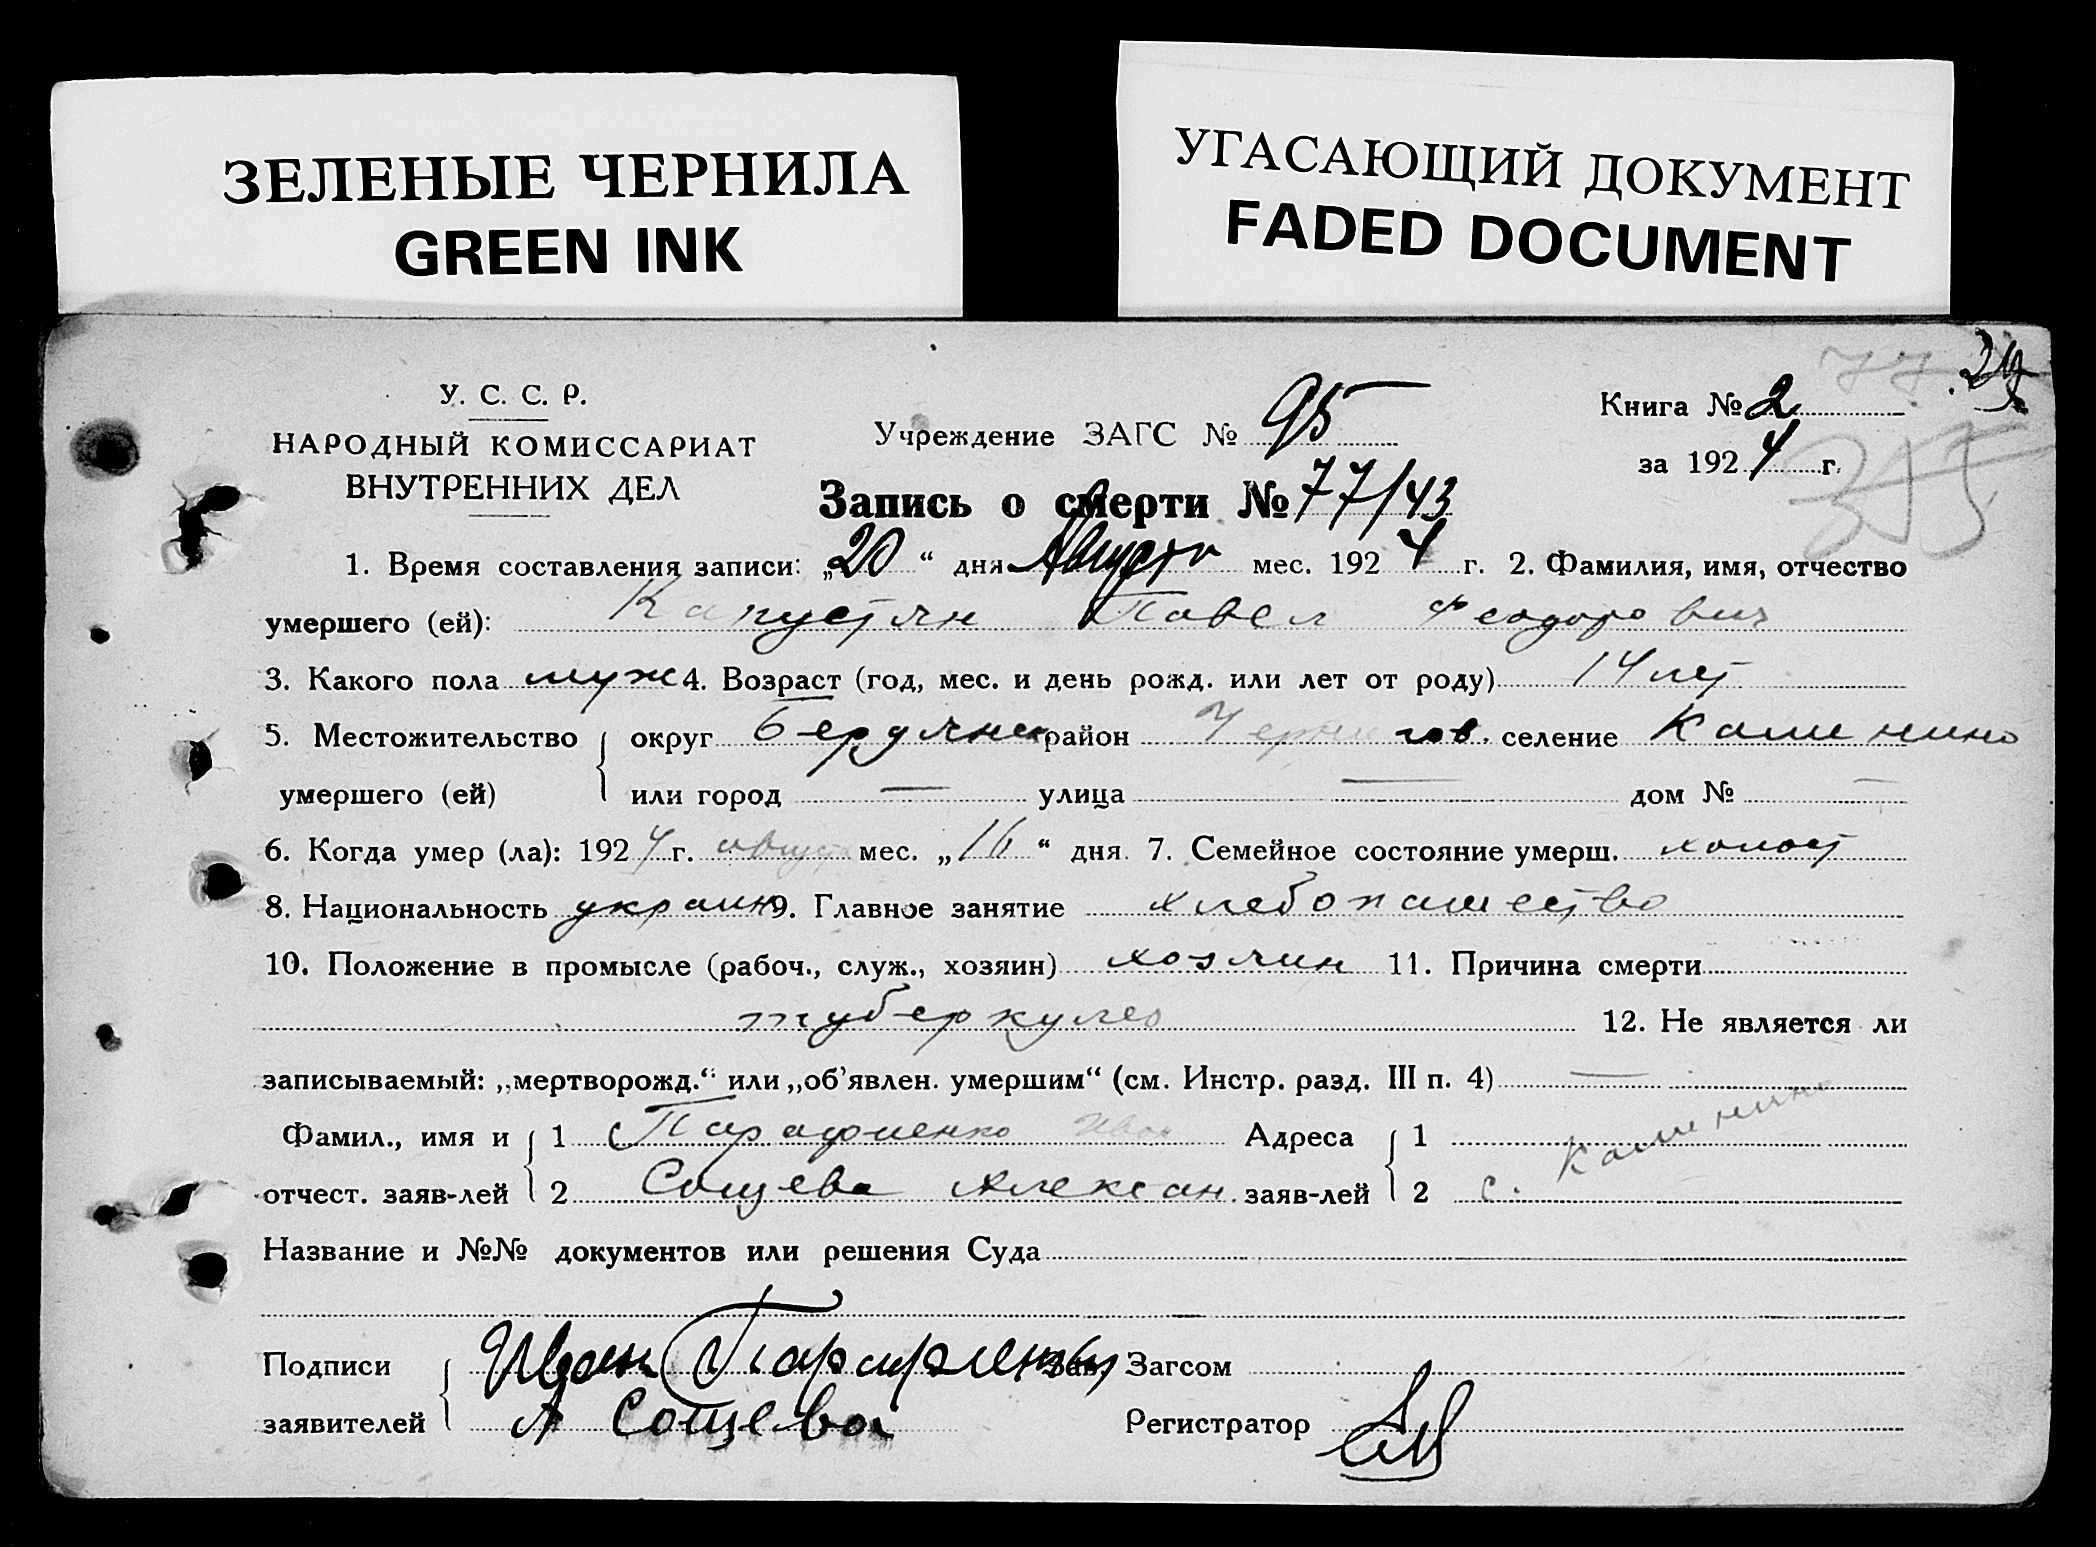 ЗЕЛЕНЫЕ ЧЕРНИЛА
GREEN INK
УГАСАЮЩИЙ ДОКУМЕНТ
FADED DOCUMENT
77
315
У. С. С. Р.
НАРОДНЫЙ КОМИССАРИАТ
ВНУТРЕННИХ ДЕЛ
Учреждение ЗАГС № 95
Книга № 2
за 1924 г.
Запись о смерти № 77/43
1. Время составления записи: „20“ дня Августа мес. 1924 г. 2. Фамилия, имя, отчество
умершего (ей): Капустян Павел Феодорович
3. Какого пола муж 4. Возраст (год, мес. и день рожд. или лет от роду) 14 лет
5. Местожительство округ Бердянск район Чернигов. селение Калинино
умершего (ей) или город — улица — дом № —
6. Когда умер (ла): 1924 г. август мес. „16“ дня. 7. Семейное состояние умерш. холост
8. Национальность украин 9. Главное занятие хлебопашество
10. Положение в промысле (рабоч., служ., хозяин) хозяин 11. Причина смерти
туберкулез
12. Не является ли
записываемый: „мертворожд.“ или „об’явлен. умершим“ (см. Инстр. разд. III п. 4) —
Фамил., имя и 1 Парафиенко Иван Адреса 1
отчест. заяв-лей 2 Сощева Алексан. заяв-лей 2 с. Калинино
Название и №№ документов или решения Суда
Подписи Иван Парафиенко Зав. Загсом
заявителей А Сощева Регистратор